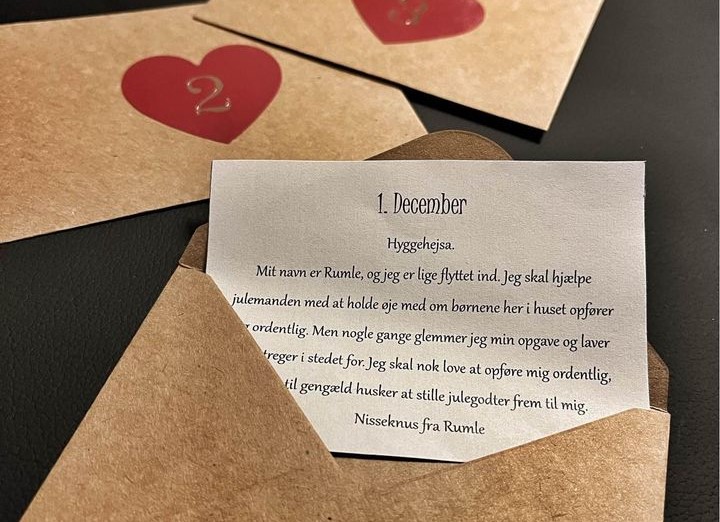 3
2
1. December
Hyggehejsa.
Mit navn er Rumle, og jeg er lige flyttet ind. Jeg skal hjælpe
julemanden med at holde øje med om børnene her i huset opfører
ordentlig. Men nogle gange glemmer jeg min opgave og laver
i stedet for. Jeg skal nok love at opføre mig ordentlig,
til gengæld husker at stille julegodter frem til mig.
Nisseknus fra Rumle